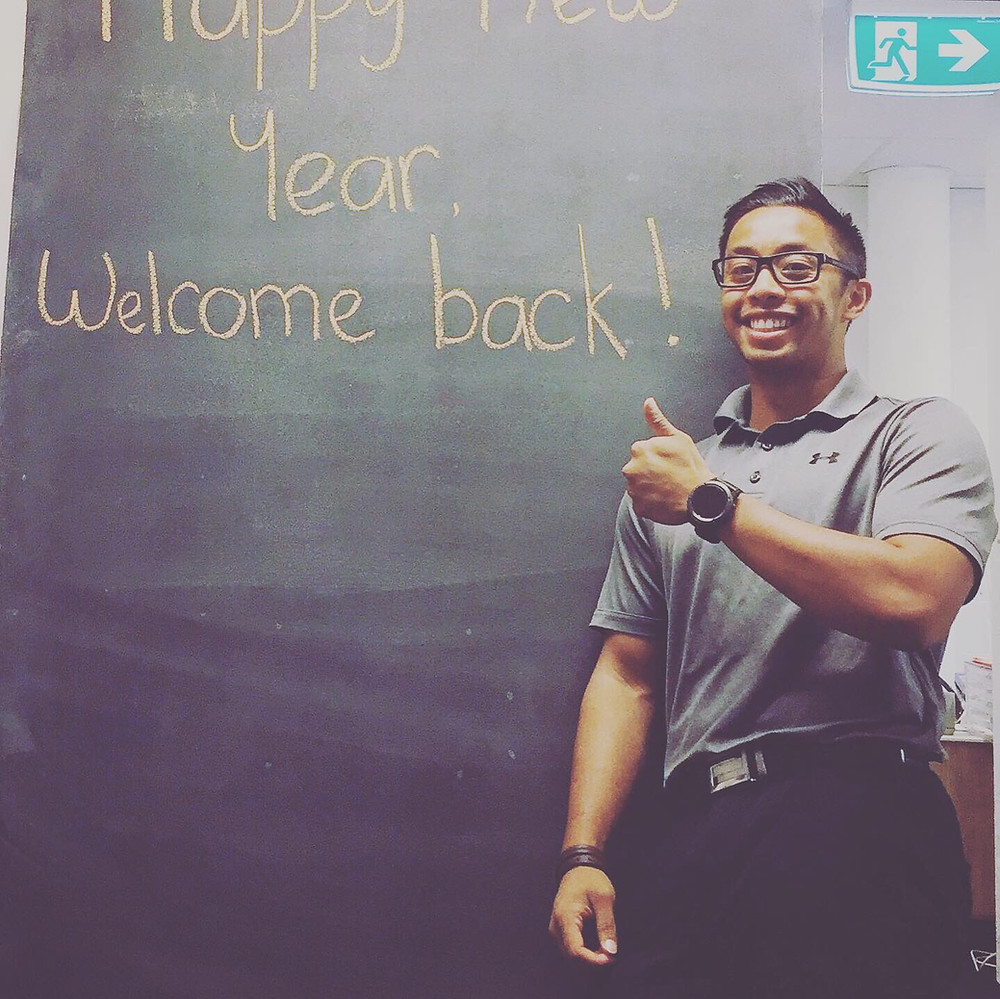 Happy New
Year,
Welcome back!